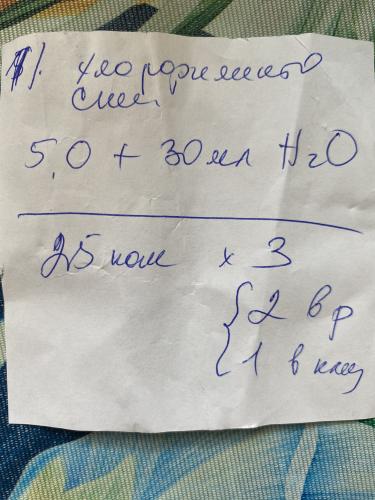 1). хлорофиллипт
спит
5,0 + 30 мл H2O
25 кап х 3
2 в р
1 в клиз